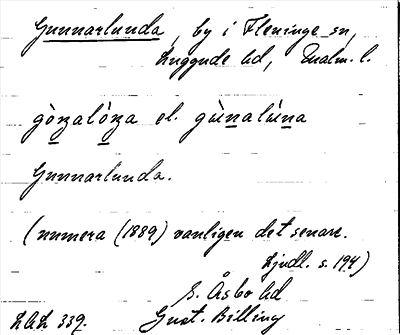 Gunnarlunda, by i Fleninge sn,
Luggude hd, Malm. l.
gòṉalóṉa el. gùnalúna
Gunnarlunda.
(numera (1889) vanligen det senare.
Ljudl. s. 194)
S. Åsbo hd
LAL 339. Gust. Billing